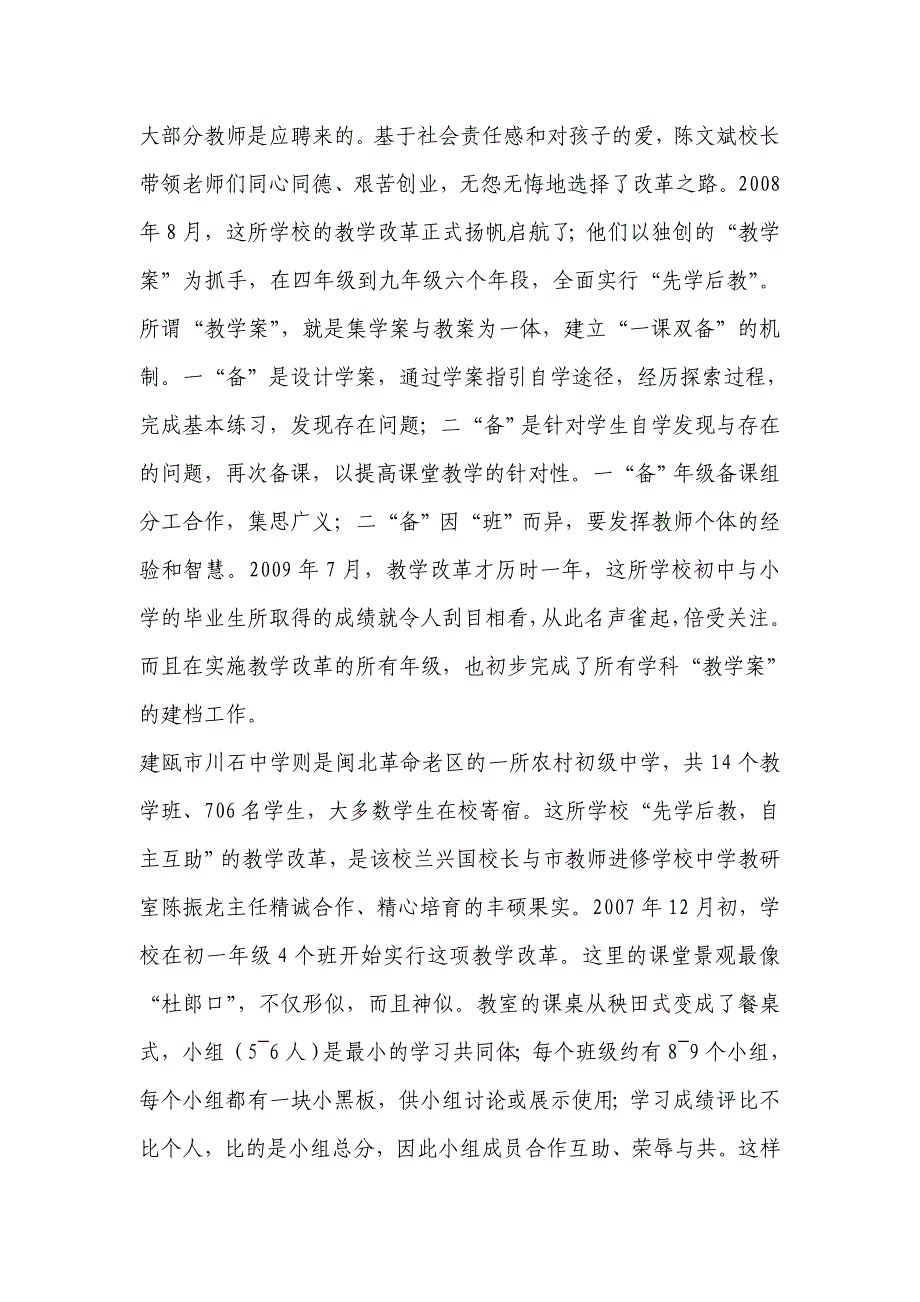 大部分教师是应聘来的。基于社会责任感和对孩子的爱，陈文斌校长
带领老师们同心同德、艰苦创业，无怨无悔地选择了改革之路。2008
年 8 月，这所学校的教学改革正式扬帆启航了；他们以独创的“教学
案”为抓手，在四年级到九年级六个年段，全面实行“先学后教”。
所谓“教学案”，就是集学案与教案为一体，建立“一课双备”的机
制。一“备”是设计学案，通过学案指引自学途径，经历探索过程，
完成基本练习，发现存在问题；二“备”是针对学生自学发现与存在
的问题，再次备课，以提高课堂教学的针对性。一“备”年级备课组
分工合作，集思广义；二“备”因“班”而异，要发挥教师个体的经
验和智慧。2009 年 7 月，教学改革才历时一年，这所学校初中与小
学的毕业生所取得的成绩就令人刮目相看，从此名声雀起，倍受关注。
而且在实施教学改革的所有年级，也初步完成了所有学科“教学案”
的建档工作。
建瓯市川石中学则是闽北革命老区的一所农村初级中学，共 14 个教
学班、706 名学生，大多数学生在校寄宿。这所学校“先学后教，自
主互助”的教学改革，是该校兰兴国校长与市教师进修学校中学教研
室陈振龙主任精诚合作、精心培育的丰硕果实。2007 年 12 月初，学
校在初一年级 4 个班开始实行这项教学改革。这里的课堂景观最像
“杜郎口”，不仅形似，而且神似。教室的课桌从秧田式变成了餐桌
式，小组（5‾6 人）是最小的学习共同体；每个班级约有 8‾9 个小组，
每个小组都有一块小黑板，供小组讨论或展示使用；学习成绩评比不
比个人，比的是小组总分，因此小组成员合作互助、荣辱与共。这样